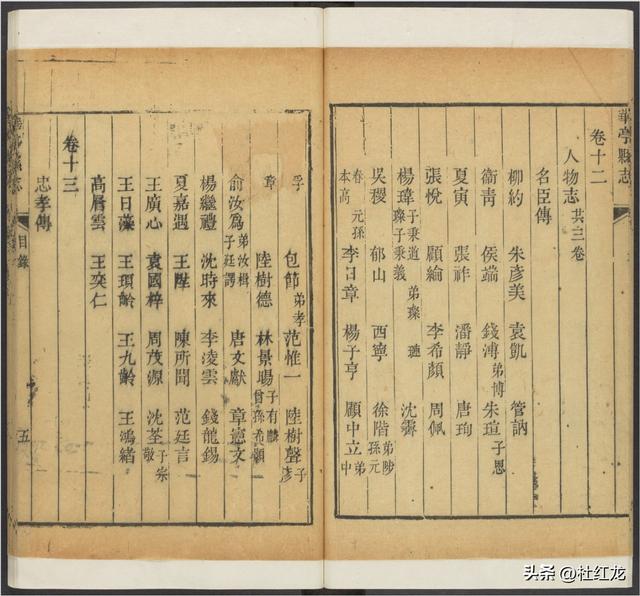 華亭縣志
卷十二
人物志 共三卷
名臣傳
柳約 朱彥美 袁凱 管訥
衞青 侯端 錢溥 弟博 朱瑄 子恩
夏寅 張祚 潘靜 唐珣
張悅 顧綸 李希顏 周佩
楊瑋 子秉道 璨子秉義 弟璨 璉 沈霽
吳稷 郁山 西寧 徐階 弟陟 孫元
春 元孫本高 李日章 楊子亨 顧中立 弟中
孚 包節 弟孝 范惟一 陸樹聲 子彥
章 陸樹德 林景暘 子有麟 曾孫希顥
俞汝爲 弟汝楫 子廷諤 唐文獻 章憲文
楊繼禮 沈時來 李凌雲 錢龍錫
夏嘉遇 王陞 陳所聞 范廷言
王廣心 袁國梓 周茂源 沈荃 子宗敬
王日藻 王頊齡 王九齡 王鴻緒
高層雲 王奕仁
卷十三
忠孝傳
目錄
五
头条 @杜红龙